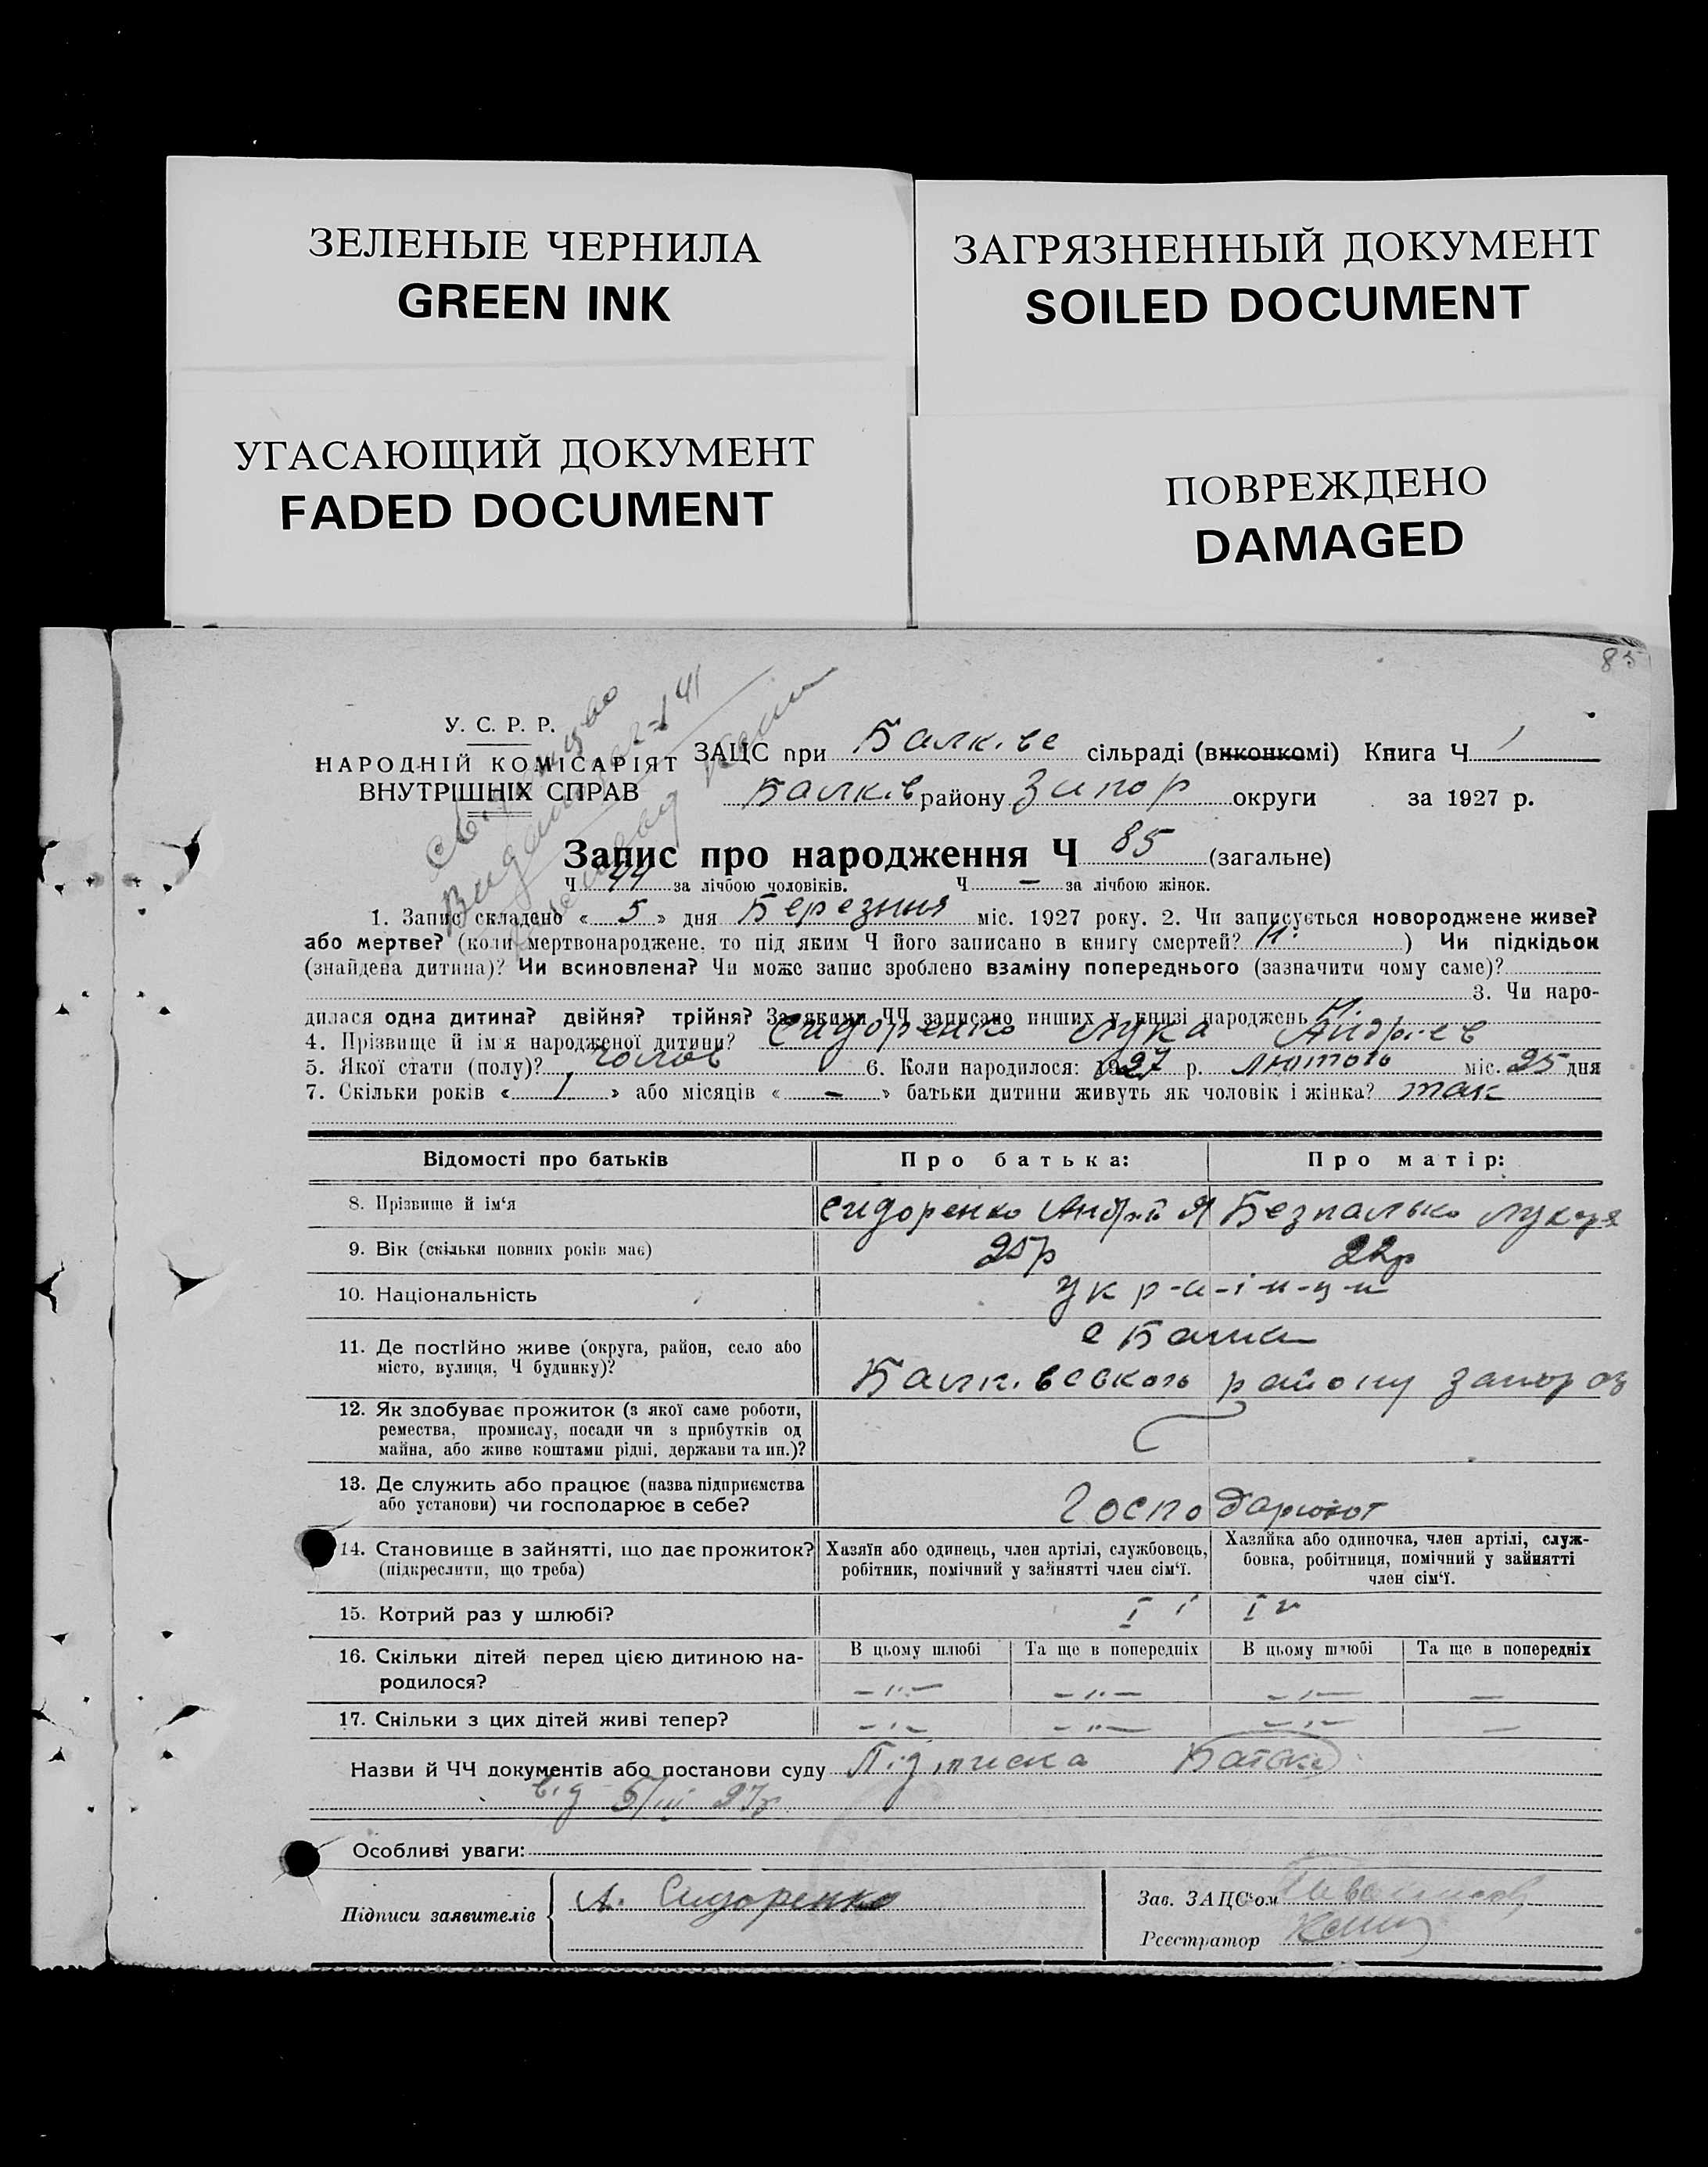 ЗЕЛЕНЫЕ ЧЕРНИЛА
GREEN INK
ЗАГРЯЗНЕННЫЙ ДОКУМЕНТ
SOILED DOCUMENT
УГАСАЮЩИЙ ДОКУМЕНТ
FADED DOCUMENT
ПОВРЕЖДЕНО
DAMAGED
85
У. С. Р. Р.
НАРОДНІЙ КОМІСАРІЯТ
ВНУТРІШНІХ СПРАВ
ЗАЦС при Балківс сільраді (виконкомі) Книга Ч 1
Балків району Запор округи за 1927 р.
Запис про народження Ч 85 (загальне)
Ч 44 за лічбою чоловіків. Ч — за лічбою жінок.
1. Запис складено « 5 » дня Березня міс. 1927 року. 2. Чи записується новороджене живе?
або мертве? (коли мертвонароджене, то під яким Ч його записано в книгу смертей? Н. ) Чи підкідьок
(знайдена дитина)? Чи всиновлена? Чи може запис зроблено взаміну попереднього (зазначити чому саме)?
3. Чи наро-
дилася одна дитина? двійня? трійня? За якими ЧЧ записано инших у книзі народжень Н.
4. Прізвище й ім'я народженої дитини? Сидоренко Лука Андрієв
5. Якої стати (полу)? чолов 6. Коли народилося: 1927 р. лютого міс. 25 дня
7. Скільки років « 1 » або місяців « – » батьки дитини живуть як чоловік і жінка? так
Відомості про батьків Про батька: Про матір:
8. Прізвище й ім'я Сидоренко Андрій Я Безпалько Лукеря
9. Вік (скільки повних років має) 25р 22р
10. Національність Укр-а-і-н-ц-и
11. Де постійно живе (округа, район, село або
місто, вулиця, Ч будинку)?
с Балки
Балківського району Запороз
12. Як здобуває прожиток (з якої саме роботи,
ремества, промислу, посади чи з прибутків од
майна, або живе коштами рідні, держави та ин.)?
13. Де служить або працює (назва підприємства
або установи) чи господарює в себе?
Господарюют
14. Становище в зайнятті, що дає прожиток?
(підкреслити, що треба)
Хазяїн або одинець, член артілі, службовець,
робітник, помічний у зайнятті член сім'ї.
Хазяйка або одиночка, член артілі, служ-
бовка, робітниця, помічний у зайнятті
член сім'ї.
15. Котрий раз у шлюбі? I й I й
16. Скільки дітей перед цією дитиною на-
родилося?
В цьому шлюбі Та ще в попередніх В цьому шлюбі Та ще в попередніх
– " – – " – – " – –
17. Скільки з цих дітей живі тепер? – " – – " – – " – –
Назви й ЧЧ документів або постанови суду Підписка Батька
від 5/III 27р.
Особливі уваги:
Підписи заявителів А. Сидоренко
Зав. ЗАЦС'ом
Реєстратор